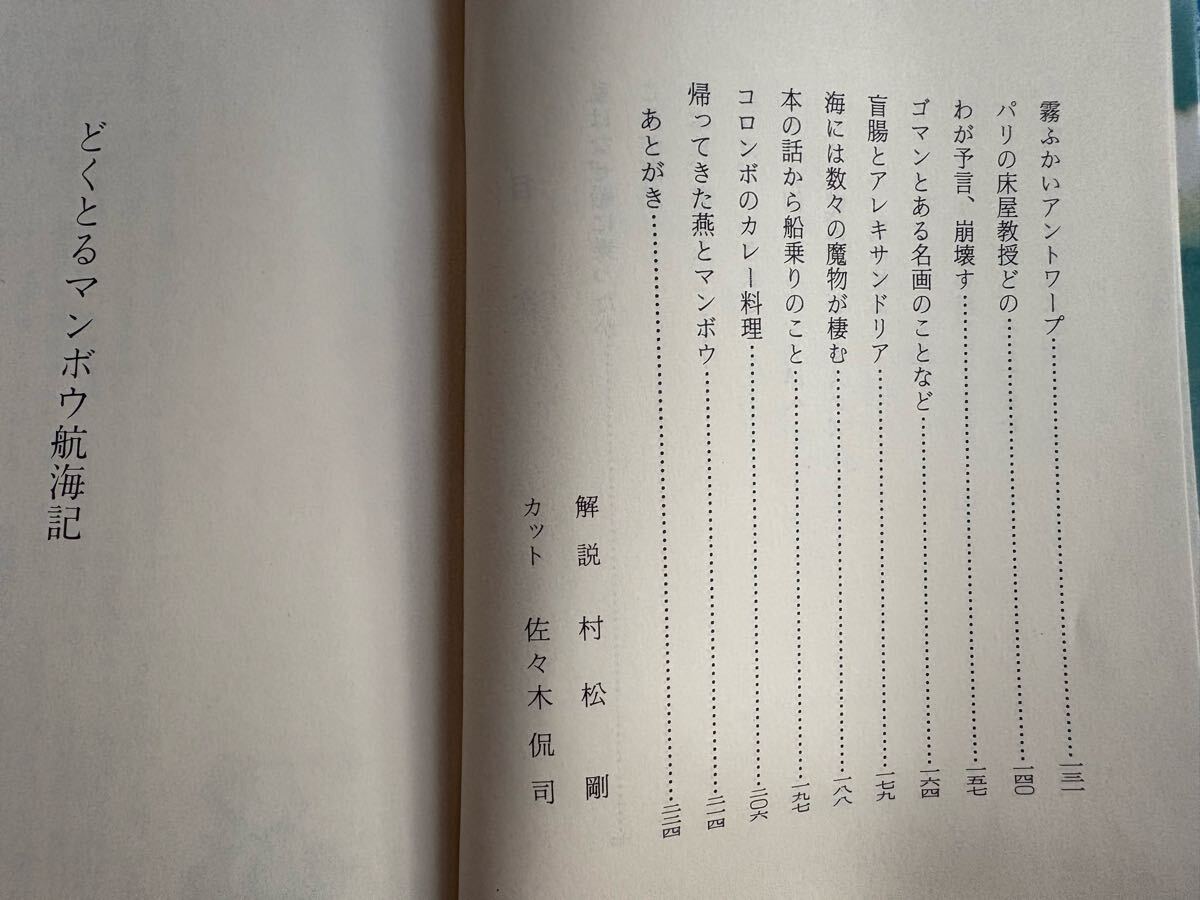 霧ふかいアントワープ……一三一
パリの床屋教授どの……一四〇
わが予言、崩壊す……一五七
ゴマンとある名画のことなど……一六四
盲腸とアレキサンドリア……一七九
海には数々の魔物が棲む……一八八
本の話から船乗りのこと……一九七
コロンボのカレー料理……二〇六
帰ってきた燕とマンボウ……二一四
あとがき……二二四
解説 村松剛
カット 佐々木侃司
どくとるマンボウ航海記